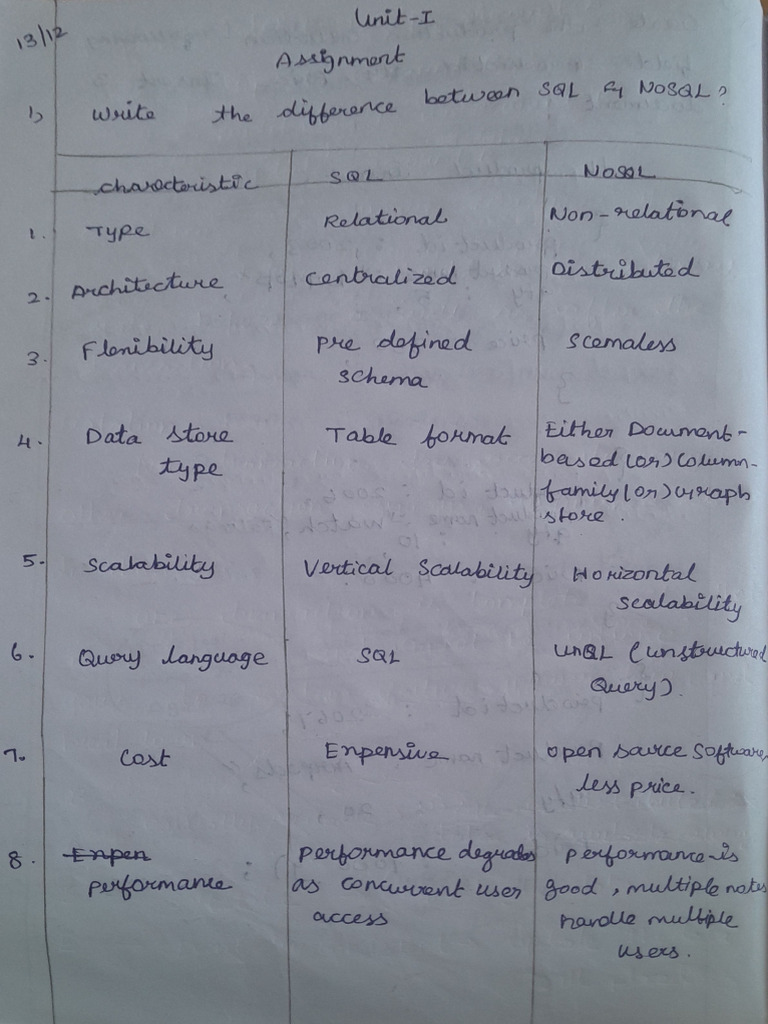 13/12
Unit-I
Assignment
1) Write the difference between SQL & NOSQL?
characteristic SQL NOSQL
1. Type Relational Non-relational
2. Architecture Centralized Distributed
3. Flexibility pre defined Scemaless
schema
4. Data store Table format Either Document-
type based (or) Column-
family (or) Graph
store.
5. Scalability Vertical Scalability Horizontal
scalability
6. Query language SQL UnQL (unstructured
Query).
7. Cost Expensive open source software,
less price.
8. Expen performance degrades performance is
performance as concurrent user good, multiple notes
access handle multiple
users.